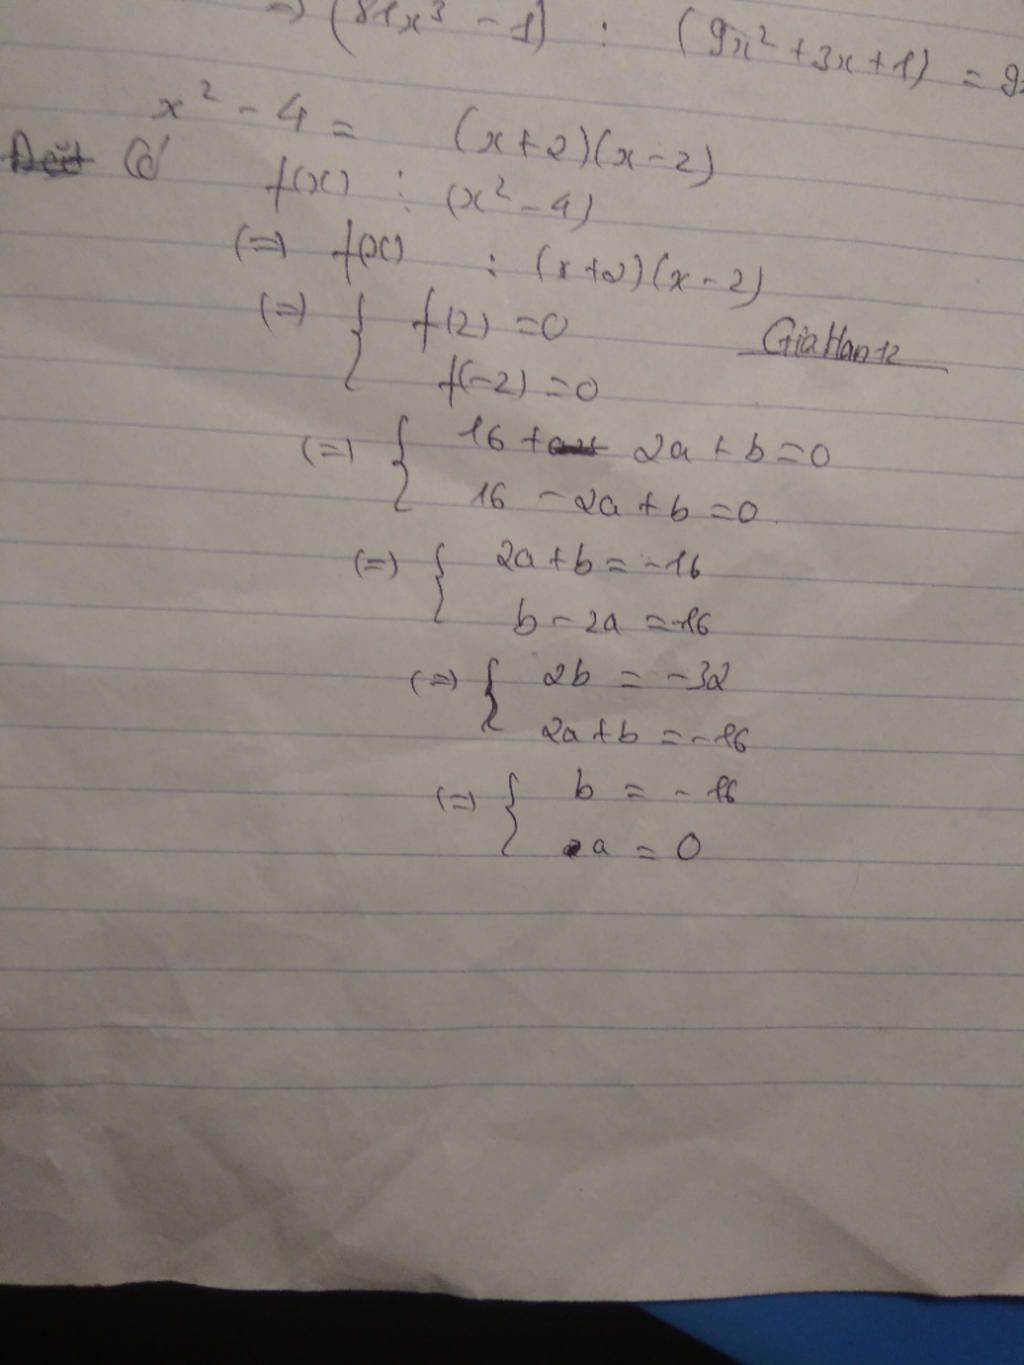 => (81x³ - 1) : (9x² + 3x + 1) = 9x
x² - 4 = (x+2)(x-2)
Có f(x) ⋮ (x² - 4)
(=) f(x) : (x+2)(x-2)
(=) { f(2) = 0
f(-2) = 0
GiaHan12
(=) { 16 + 2a + b = 0
16 - 2a + b = 0
(=) { 2a + b = -16
b - 2a = -16
(=) { 2b = -32
2a + b = -16
(=) { b = -16
a = 0